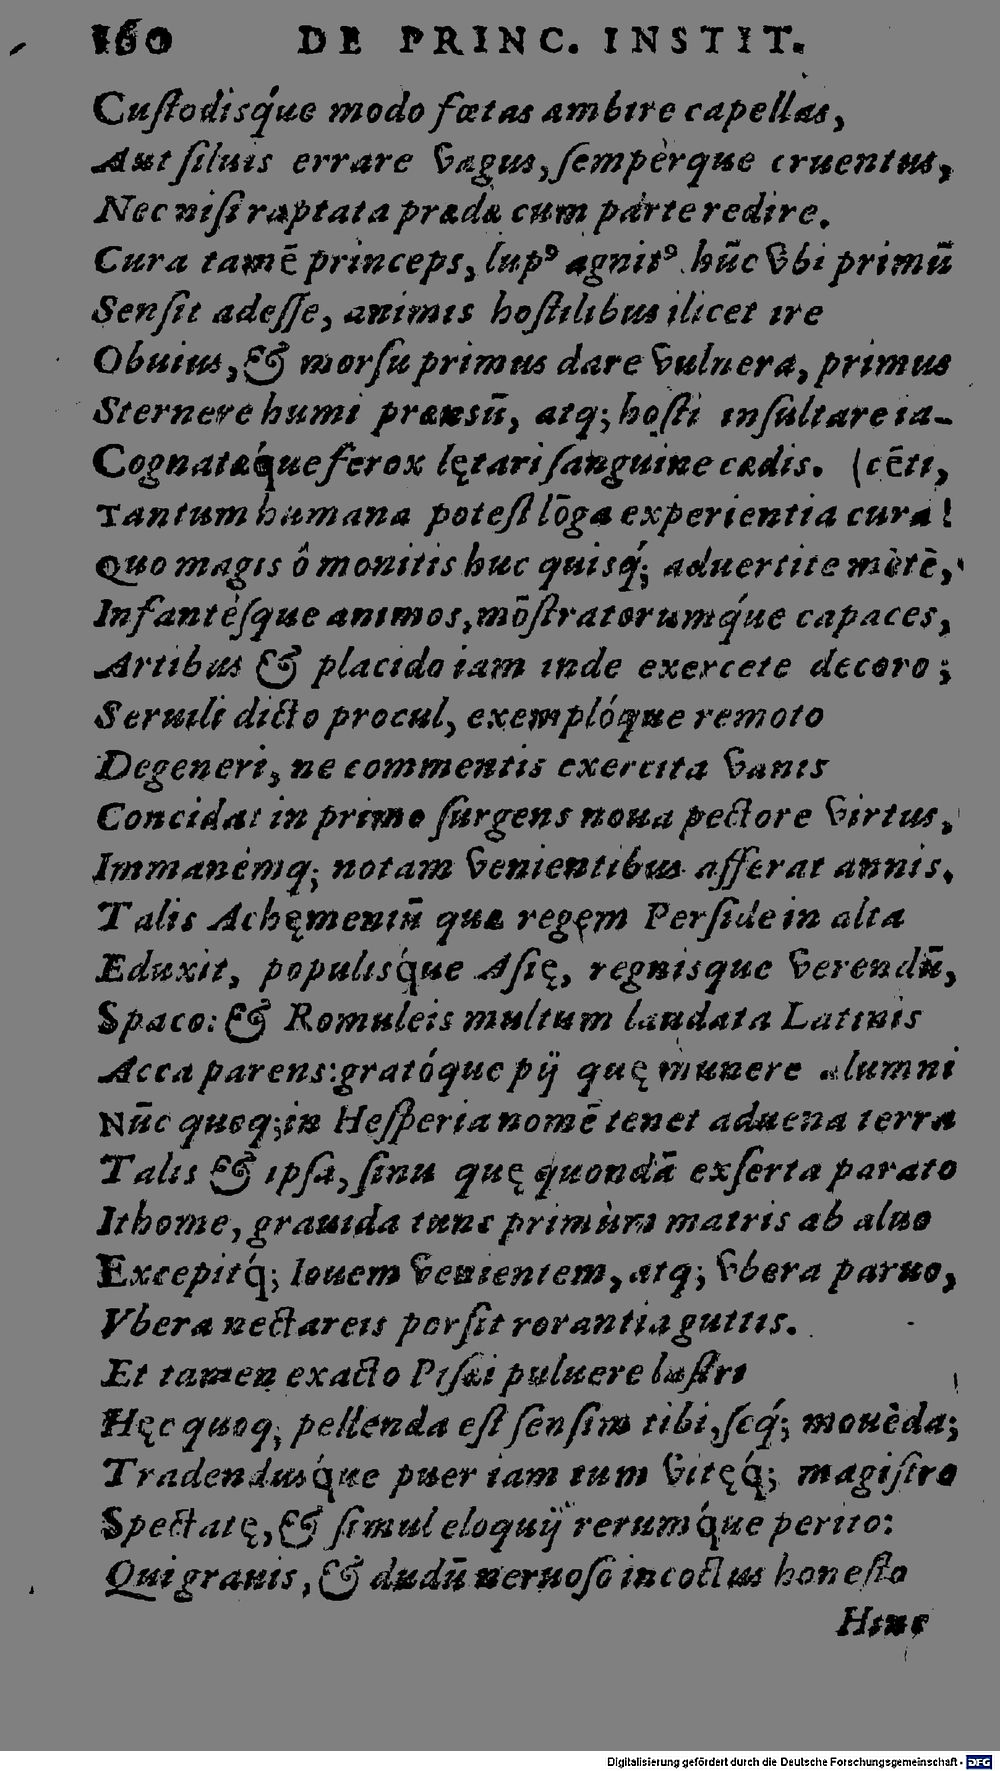 160 DE PRINC. INSTIT.
Cuſtodisq́ue modo fœtas ambire capellas,
Aut ſiluis errare vagus, ſempèrque cruentus,
Nec niſi raptata præda cum parte redire.
Cura tamē princeps, lupꝰ agnitꝰ hūc vbi primū
Senſit adeſſe, animis hoſtilibus ilicet ire
Obuius, & morſu primus dare vulnera, primus
Sternere humi prænsū, atq; hoſti inſultare ia-
Cognatæq́ue ferox lętari ſanguine cædis. (cēti,
Tantum humana poteſt lōga experientia cura!
Quo magis ô monitis huc quisq́; aduertite mētē,
Infantèſque animos, mōſtratorumq́ue capaces,
Artibus & placido iam inde exercete decoro;
Seruili dicto procul, exemplóque remoto
Degeneri, ne commentis exercita vanis
Concidat in primo ſurgens noua pectore virtus,
Immanémq; notam venientibus afferat annis.
Talis Achęmeniū quæ regem Perſide in alta
Eduxit, populisq́ue Aſię, regnisque verendū,
Spaco: & Romuleis multum laudata Latinis
Acca parens: gratóque pij quę munere alumni
Nūc quoq; in Heſperia nomē tenet aduena terra
Talis & ipſa, ſinu quę quondā exſerta parato
Ithome, grauida tunc primùm matris ab aluo
Excepitq́; Iouem venientem, atq; vbera paruo,
Vbera nectareis porſit rorantia guttis.
Et tamen exacto Piſæi puluere luſtri
Hęc quoq; pellenda eſt ſenſim tibi, ſeq́; mouēda;
Tradendusq́ue puer iam tum vitęq́; magiſtro
Spectatę, & ſimul eloquij rerumq́ue perito:
Qui grauis, & dudū neruoſo incoctus honeſto
Hinc
Digitalisierung gefördert durch die Deutsche Forschungsgemeinschaft - DFG